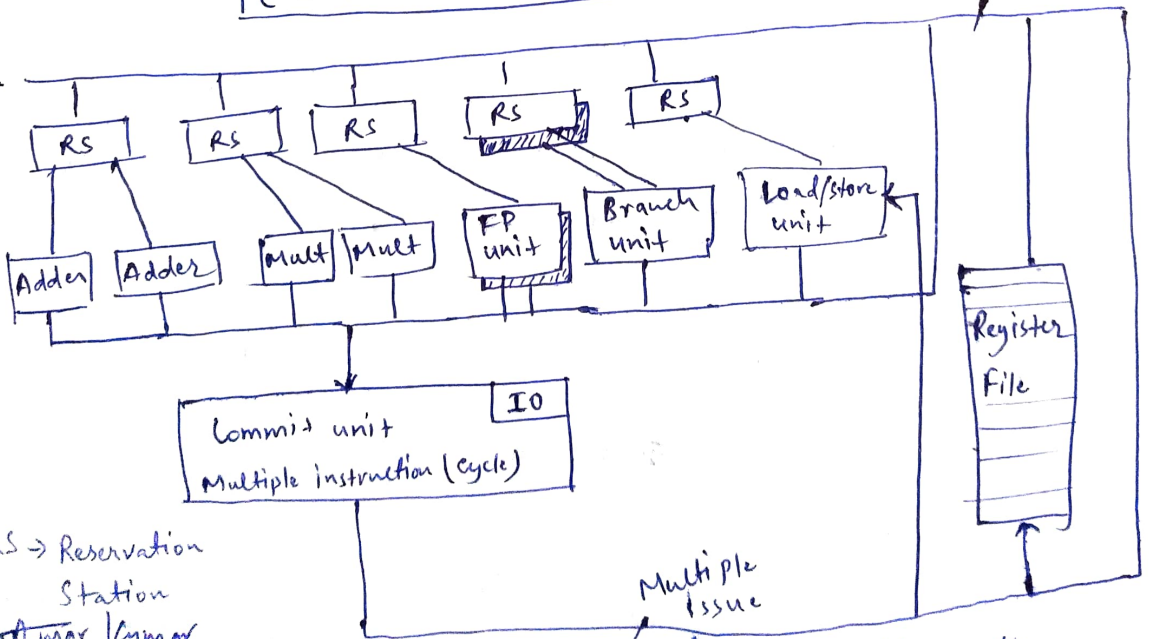 RS
RS
RS
RS
RS
Adder
Adder
Mult
Mult
FP
unit
Branch
unit
Load/store
unit
Register
File
IO
Commit unit
Multiple instruction (cycle)
RS → Reservation
Station
Multiple
issue